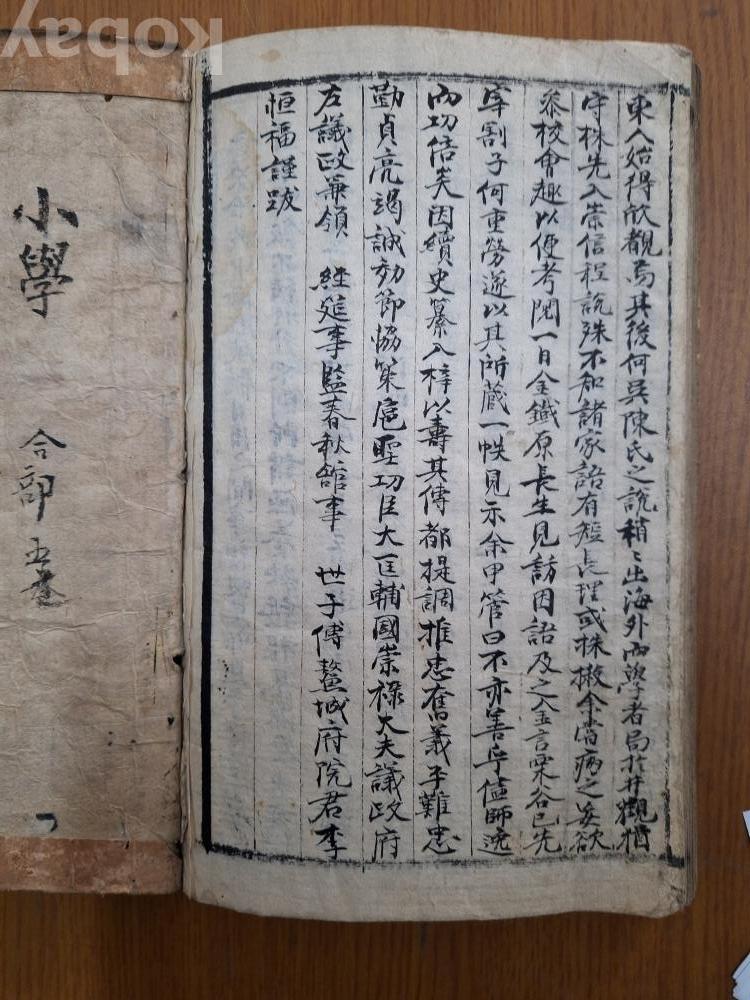 東人始得欣觀焉其後何吳陳氏之說稍〻出海外而學者局於井觀猶
守株先入崇信程說殊不知諸家語有短長理或株撇余嘗病之妄欲
叅校會趣以便考閱一日金鐵原長生見訪因語及之金言栗谷已先
穿割子何重勞遂以其所藏一帙見示余甲管曰不亦善乎儘師逸
而功倍矣因續史纂入梓以壽其傳都提調推忠奮義平難忠
勤貞亮竭誠効節協策扈聖功臣大匡輔國崇祿大夫議政府
左議政兼領 經筵事監春秋館事 世子傅鰲城府院君李
恒福謹跋
小學
合部 五卷
Kobay